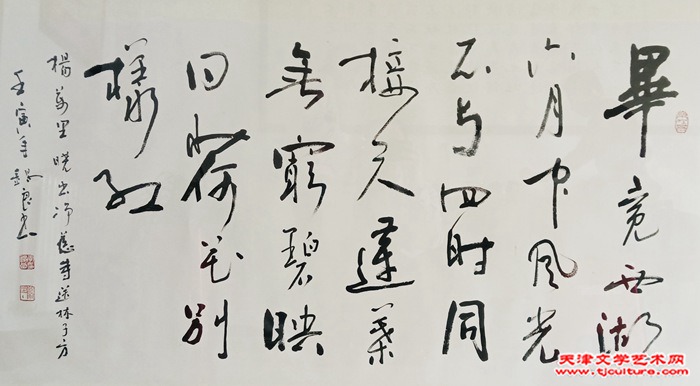 畢竟西湖
六月中風光
不与四时同
接天蓮葉
無窮碧映
日荷花别
樣红
楊萬里曉出净慈寺送林子方
壬寅年
天津文学艺术网
www.tjculture.com